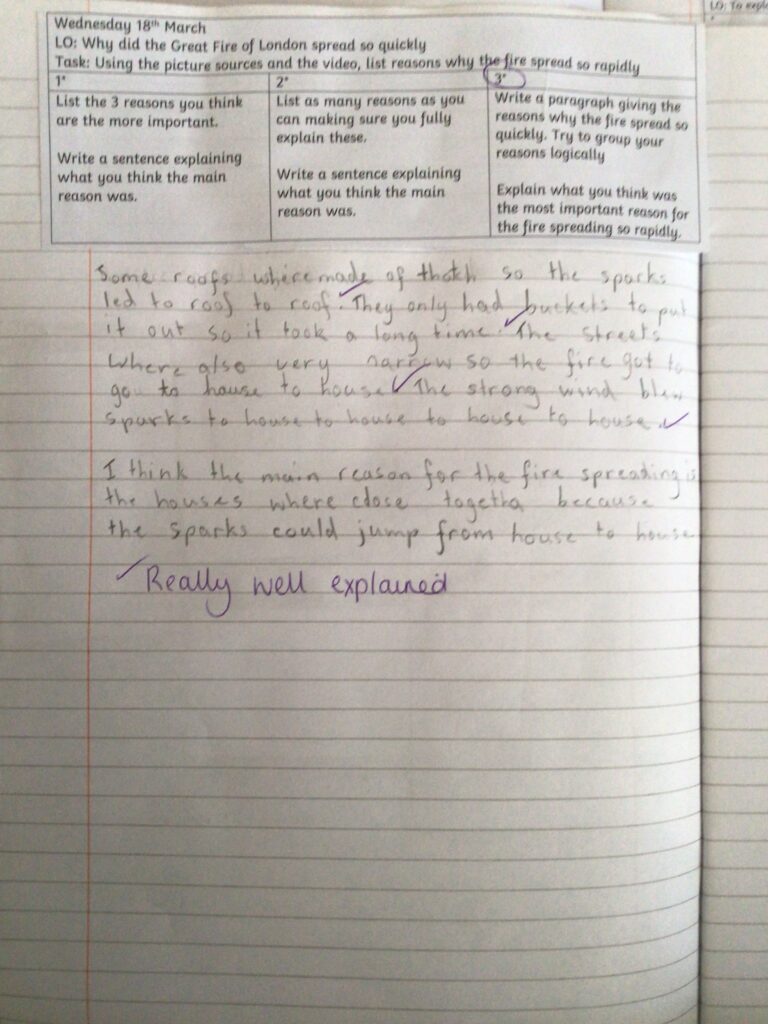 LO: To expl
Wednesday 18th March
LO: Why did the Great Fire of London spread so quickly
Task: Using the picture sources and the video, list reasons why the fire spread so rapidly
1*
List the 3 reasons you think
are the more important.
Write a sentence explaining
what you think the main
reason was.
2*
List as many reasons as you
can making sure you fully
explain these.
Write a sentence explaining
what you think the main
reason was.
3*
Write a paragraph giving the
reasons why the fire spread so
quickly. Try to group your
reasons logically
Explain what you think was
the most important reason for
the fire spreading so rapidly.
Some roofs where made of thatch so the sparks
led to roof to roof. They only had buckets to put
it out so it took a long time. The streets
where also very narrow so the fire got to
go to house to house. The strong wind blew
sparks to house to house to house to house.
I think the main reason for the fire spreading is
the houses where close togetha because
the sparks could jump from house to house
Really well explained